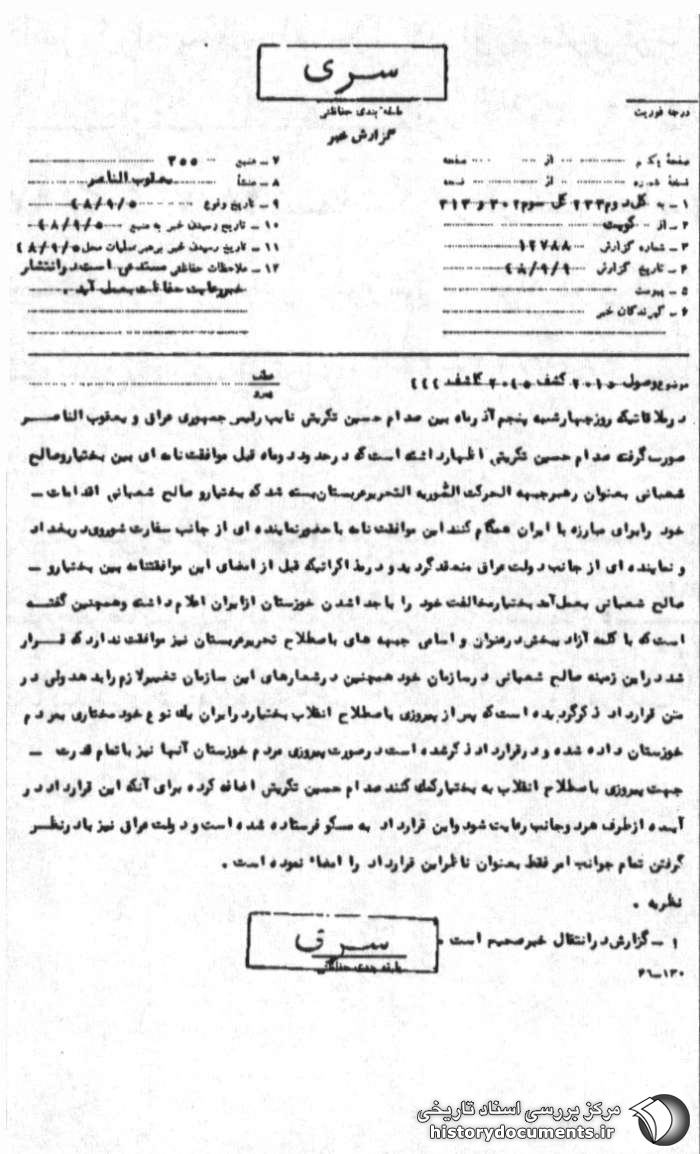 سری
طبقه بندی حفاظتی
درجه فوریت
گزارش خبر
صفحهٔ یکم از صفحه
نسخهٔ شماره از نسخه
۱ – به کل دوم ۲۳۳ کل سوم ۳۰۲ و ۳۱۳
۲ – از کویت
۳ – شماره گزارش ۱۲۷۸۸
۴ – تاریخ گزارش ۴۸/۹/۹
۵ – پیوست
۶ – گیرندگان خبر
۷ – منبع ۳۵۵
۸ – منشأ یعقوب الناصر
۹ – تاریخ وقوع ۴۸/۹/۵
۱۰ – تاریخ رسیدن خبر به منبع ۴۸/۹/۵
۱۱ – تاریخ رسیدن خبر برهبر عملیات محل ۴۸/۹/۵
۱۲ – ملاحظات حفاظتی مستدعی است در انتشار
خبر رعایت حفاظت بعمل آید
موضوع وصول ۲۰۱۵ کشف ۲۰۴۵ کاشف ۴۴۴
عطف
پیرو
در ملاقاتیکه روز چهارشنبه پنجم آذر ماه بین صدام حسین تکریتی نایب رئیس جمهوری عراق و یعقوب الناصر
صورت گرفته صدام حسین تکریتی اظهار داشته است که در حدود دو ماه قبل موافقت نامه ای بین بختیار و صالح
شعبانی بعنوان رهبر جبهه الحرکت الثوریه التحریر عربستان بسته شد که بختیار و صالح شعبانی اقدامات –
خود را برای مبارزه با ایران همگام کنند این موافقت نامه با حضور نماینده ای از جانب سفارت شوروی در بغداد
و نماینده ای از جانب دولت عراق منعقد گردید و در مذاکراتیکه قبل از امضای این موافقتنامه بین بختیار و –
صالح شعبانی بعمل آمد بختیار مخالفت خود را با جدا شدن خوزستان از ایران اعلام داشته و همچنین گفته
است که با کلمه آزاد ببخش در عنوان و اسامی جبهه های باصطلاح تحریر عربستان نیز موافقت ندارد که قرار
شد در این زمینه صالح شعبانی در سازمان خود همچنین در شعارهای این سازمان تغییر لازم را بدهد ولی در
متن قرارداد ذکر گردیده است که پس از پیروزی باصطلاح انقلاب بختیار در ایران یک نوع خود مختاری بمردم
خوزستان داده شده و در قرارداد ذکر شده است در صورت پیروزی مردم خوزستان آنها نیز با تمام قدرت –
جهت پیروزی باصطلاح انقلاب به بختیار کمک کنند صدام حسین تکریتی اضافه کرده برای آنکه این قرارداد در
آینده از طرف هر دو جانب رعایت شود و این قرارداد به مسکو فرستاده شده است و دولت عراق نیز با در نظر
گرفتن تمام جوانب امر فقط بعنوان ناظر این قرارداد را امضاء نموده است .
نظریه .
۱ – گزارش در انتقال خبر صحیح است .
سری
طبقه بندی حفاظتی
۳۶–۱۳۰
مرکز بررسی اسناد تاریخی
historydocuments.ir